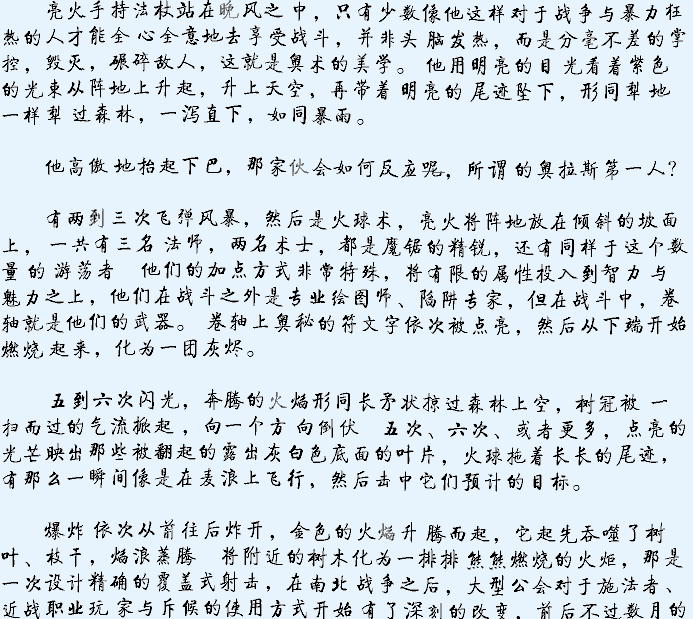 亮火手持法杖站在晚风之中，只有少数像他这样对于战争与暴力狂
热的人才能全心全意地去享受战斗，并非头脑发热，而是分毫不差的掌
控，毁灭，碾碎敌人，这就是奥术的美学。他用明亮的目光看着紫色
的光束从阵地上升起，升上天空，再带着明亮的尾迹坠下，形同犁地
一样犁过森林，一泻直下，如同暴雨。
他高傲地抬起下巴，那家伙会如何反应呢，所谓的奥拉斯第一人？
有两到三次飞弹风暴，然后是火球术，亮火将阵地放在倾斜的坡面
上，一共有三名法师，两名术士，都是魔锯的精锐，还有同样于这个数
量的游荡者 他们的加点方式非常特殊，将有限的属性投入到智力与
魅力之上，他们在战斗之外是专业绘图师、陷阱专家，但在战斗中，卷
轴就是他们的武器。卷轴上奥秘的符文字依次被点亮，然后从下端开始
燃烧起来，化为一团灰烬。
五到六次闪光，奔腾的火焰形同长矛状掠过森林上空，树冠被一
扫而过的气流掀起，向一个方向倒伏 五次、六次、或者更多，点亮的
光芒映出那些被翻起的露出灰白色底面的叶片，火球拖着长长的尾迹，
有那么一瞬间像是在麦浪上飞行，然后击中它们预计的目标。
爆炸依次从前往后炸开，金色的火焰升腾而起，它起先吞噬了树
叶、枝干，焰浪蒸腾 将附近的树木化为一排排熊熊燃烧的火炬，那是
一次设计精确的覆盖式射击，在南北战争之后，大型公会对于施法者、
近战职业玩家与斥候的使用方式开始有了深刻的改变，前后不过数月的